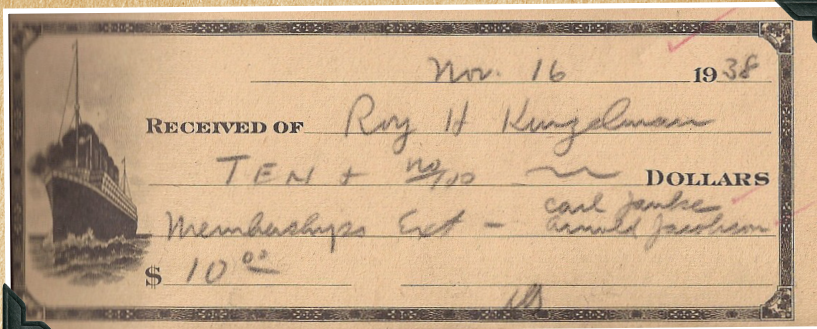 Nov. 16 1938
RECEIVED OF Roy H Kunzelman
TEN + no/100 DOLLARS
Memberships Ext - Carl Janke
Arnold Jacobson
$ 10 00